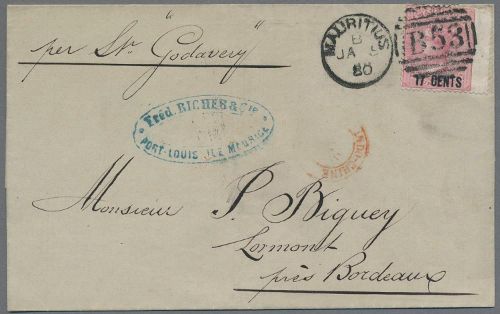 per Str "Godavery"
MAURITIUS
B
JA 9
80
B53
17 CENTS
Fréd. RICHER & Cie
PORT-LOUIS ILE MAURICE
Monsieur P. Biguey
Lormont
près Bordeaux